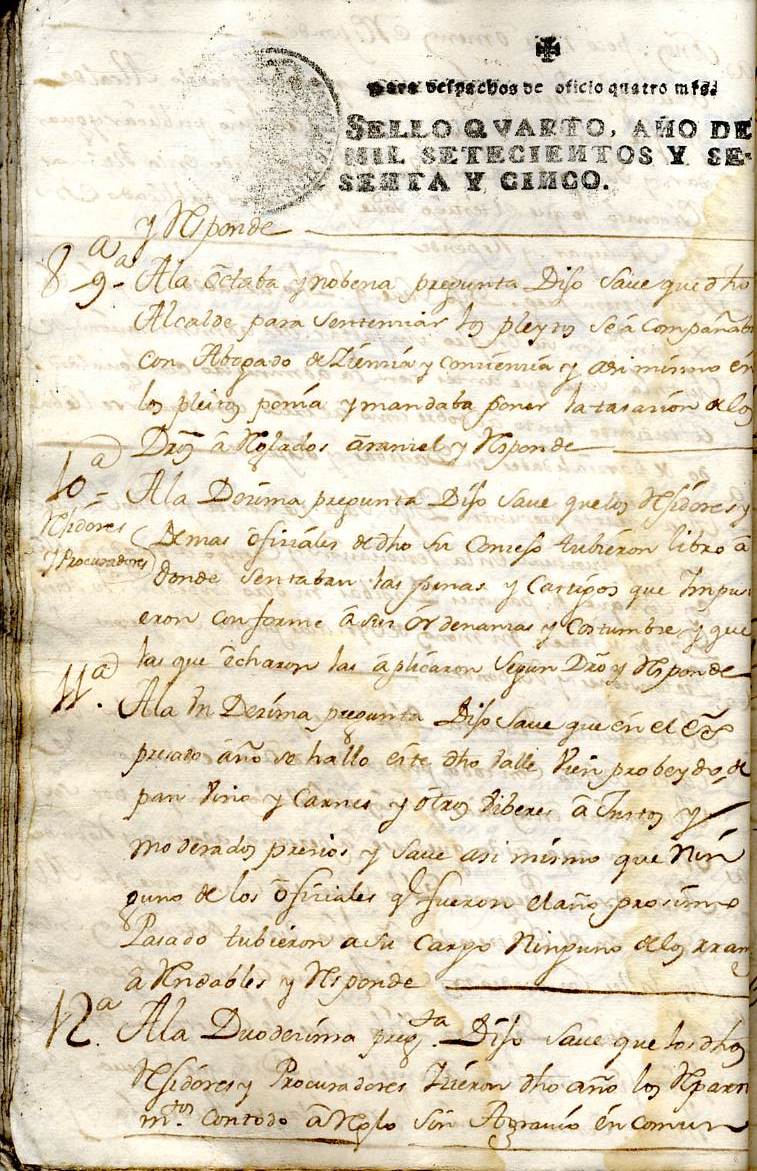 para despachos de oficio quatro mrs.
SELLO QVARTO, AÑO DE
MIL SETECIENTOS Y SE-
SENTA Y CINCO.
y Rsponde
8ª 9ª Ala Octaba y nobena pregunta Dijo Save que dho
Alcalde para Sentenciar los pleytos se á Compañaba
con Abogado de Zienzia y conzienzia y asi mismo en
los pleitos ponía y mandaba poner la tasazion de los
Dros â Rglados âranzel y Rsponde
10ª Ala Dezima pregunta Dijo Save que los Rjidores y
Rjidores y Procuradores
Demas ôfiziales de dho su Conzejo tubieron libro â
donde Sentaban las penas y Castigos que Impusi
eron conforme â sus Ordenanzas y Costumbre y que
las que êcharon las âplicaron Segun Dro y Rsponde
11ª Ala Un Dezima pregunta Dijo Save que en el
presado año se hallo este dho Valle Vien probeydo de
pan Vino y Carnes y ôtros Viberes â Justos y
moderados prezios y Save asi mismo que Nin
guno de los ôfiziales q fueron el año prosimo
Pasado tubieron a su Cargo Ninguno de los rram
â Rndables y Rsponde
12ª Ala Duodezima pregta Dijo Save que los dhos
Rjidores y Procuradores Fueron dho año los Rpartt
mtos Con todo â Rglo Sin Agravio en Comun